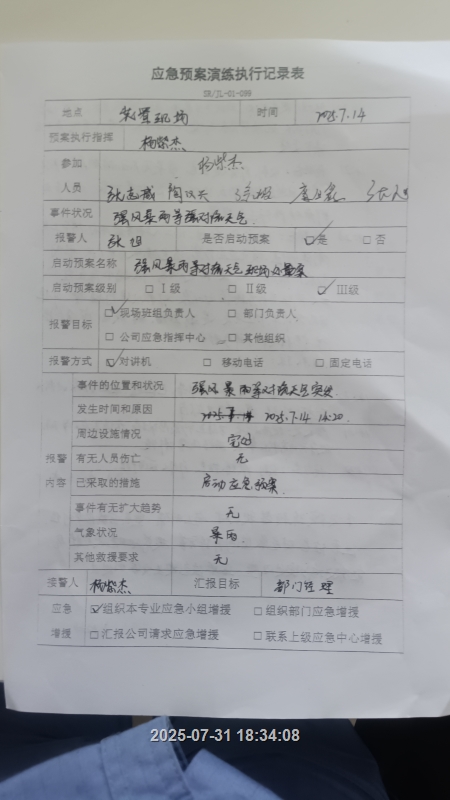 应急预案演练执行记录表
SR/JL-01-099
地点 现场 时间 2025.7.14
预案执行指挥 杨紫杰
参加 杨紫杰
人员 张志威
事件状况 强风暴雨等强对流天气
报警人 张 是否启动预案 ☑是 □否
启动预案名称 强风暴雨等对流天气现场处置案
启动预案级别 □Ⅰ级 □Ⅱ级 ☑Ⅲ级
报警目标 ☑现场班组负责人 □部门负责人
□公司应急指挥中心 □其他组织
报警方式 ☑对讲机 □移动电话 □固定电话
报警内容
事件的位置和状况 强风暴雨等对流天气突发
发生时间和原因 2025.7.14 14:20
周边设施情况 完好
有无人员伤亡 无
已采取的措施 启动应急预案.
事件有无扩大趋势 无
气象状况 暴雨
其他救援要求 无
接警人 杨紫杰 汇报目标 部门经理
应急 ☑组织本专业应急小组增援 □组织部门应急增援
增援 □汇报公司请求应急增援 □联系上级应急中心增援
2025-07-31 18:34:08